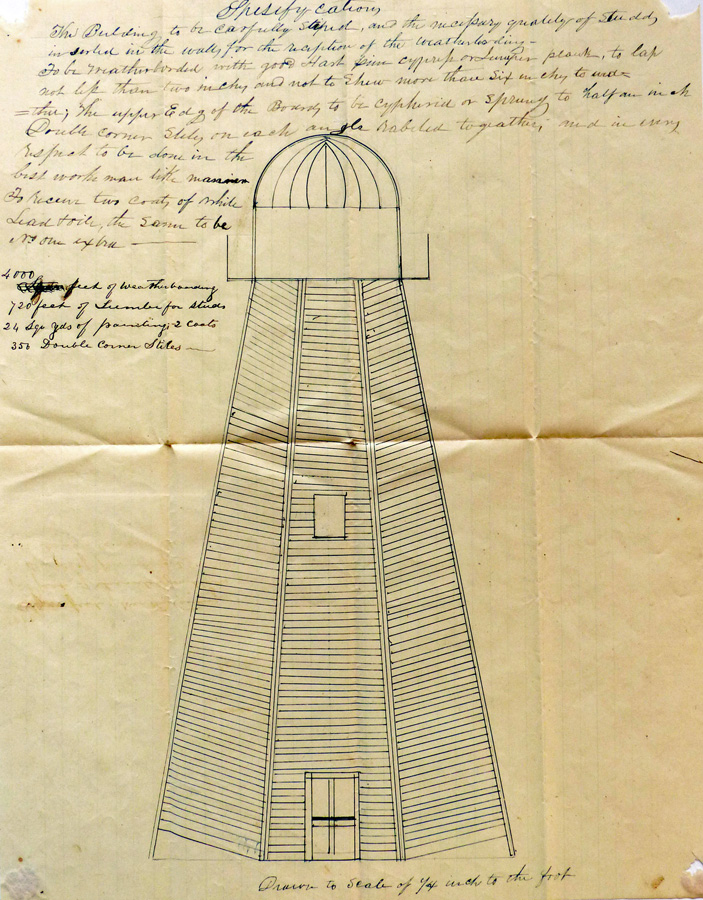 Spesifycations
The Building to be carfully Striped, and the necessary quality of Studds
inserted in the walls, for the reception of the weatherbording –
To be Weatherborded with good Hart Pine cypress or Juniper plank, to lap
not less than two inches and not to Shew more than Six inches to
=ther; The upper Edg of the Boards to be cypherid or Sprung to half an inch
Double Corner Stiles on each angle rabeted togeather, and in every
respect to be done in the
best workman like manner
To receive two coats of White
Lead & oile, the Same to be
No one extra —
4000 feet of weatherboarding
720 feet of Lumber for studs
24 Sqr yds of painting, 2 Coats
350 Double Corner Stiles —
Drawn to Scale of 1/4 inch to the foot